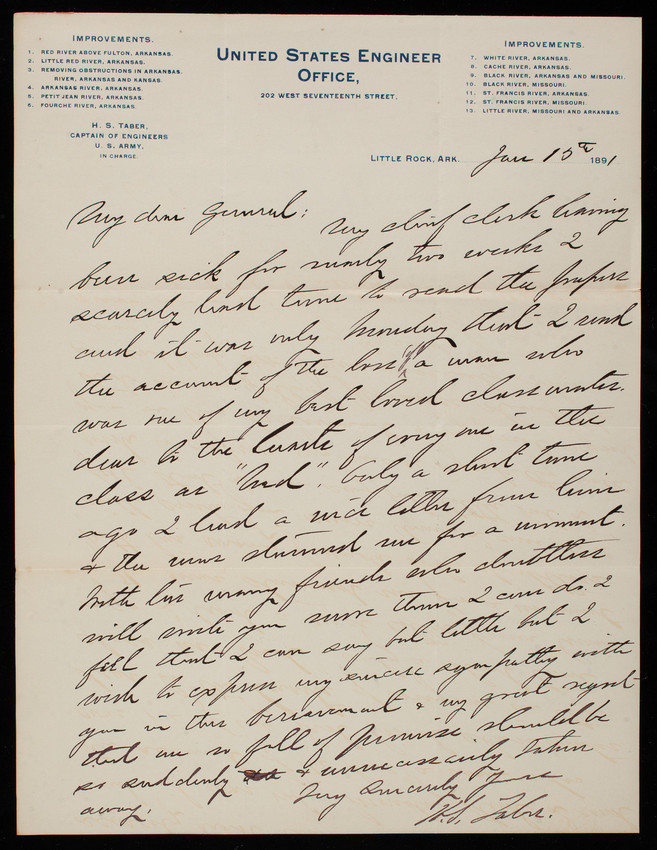 IMPROVEMENTS.
1. RED RIVER ABOVE FULTON, ARKANSAS.
2. LITTLE RED RIVER, ARKANSAS.
3. REMOVING OBSTRUCTIONS IN ARKANSAS
RIVER, ARKANSAS AND KANSAS.
4. ARKANSAS RIVER, ARKANSAS.
5. PETIT JEAN RIVER, ARKANSAS.
6. FOURCHE RIVER, ARKANSAS.
H. S. TABER,
CAPTAIN OF ENGINEERS
U. S. ARMY,
IN CHARGE.
UNITED STATES ENGINEER
OFFICE,
202 WEST SEVENTEENTH STREET,
IMPROVEMENTS.
7. WHITE RIVER, ARKANSAS.
8. CACHE RIVER, ARKANSAS.
9. BLACK RIVER, ARKANSAS AND MISSOURI.
10. BLACK RIVER, MISSOURI.
11. ST. FRANCIS RIVER, ARKANSAS.
12. ST. FRANCIS RIVER, MISSOURI.
13. LITTLE RIVER, MISSOURI AND ARKANSAS.
LITTLE ROCK, ARK. Jan 15th 1891
My dear General:
My chief clerk having
been sick for nearly two weeks I
scarcely had time to read the papers
and it was only Monday that I read
the account of the loss of a man who
was one of my best loved classmates.
dear to the hearts of every one in the
class as "Ned". Only a short time
ago I had a nice letter from him
& the news stunned me for a moment.
With his many friends who doubtless
will write you more than I can do. I
feel that I can say but little but I
wish to express my sincere sympathy with
you in this bereavement & my great regret
that one so full of promise should be
so suddenly & unnecessarily taken
away.
Very Sincerely Yours
H. S. Taber.